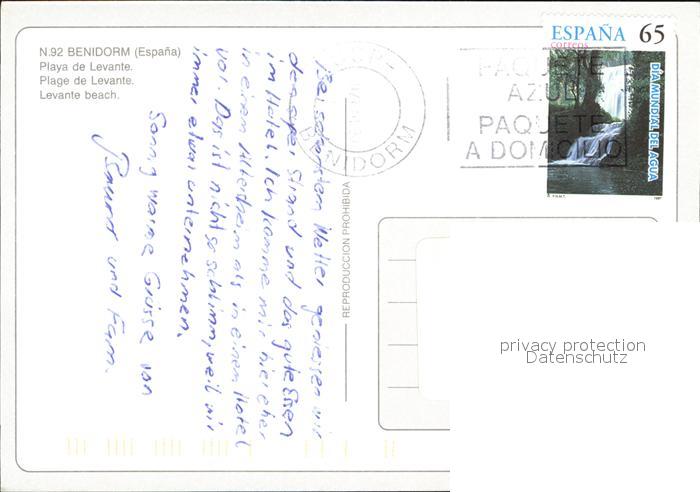 N.92 BENIDORM (España)
Playa de Levante.
Plage de Levante.
Levante beach.
ESPAÑA 65
correos
DIA MUNDIAL DEL AGUA
1997
PAQUETE
AZUL
PAQUETE
A DOMICILIO
BENIDORM
REPRODUCCION PROHIBIDA
Bei schönstem Wetter geniessen wir
den Strand und das gute Essen
im Hotel. Ich komme mir hier eher
in einem Altersheim als in einem Hotel
vor. Das ist nicht so schlimm, weil wir
immer etwas unternehmen.
Sonnig warme Grüsse von
und Fam.
privacy protection
Datenschutz